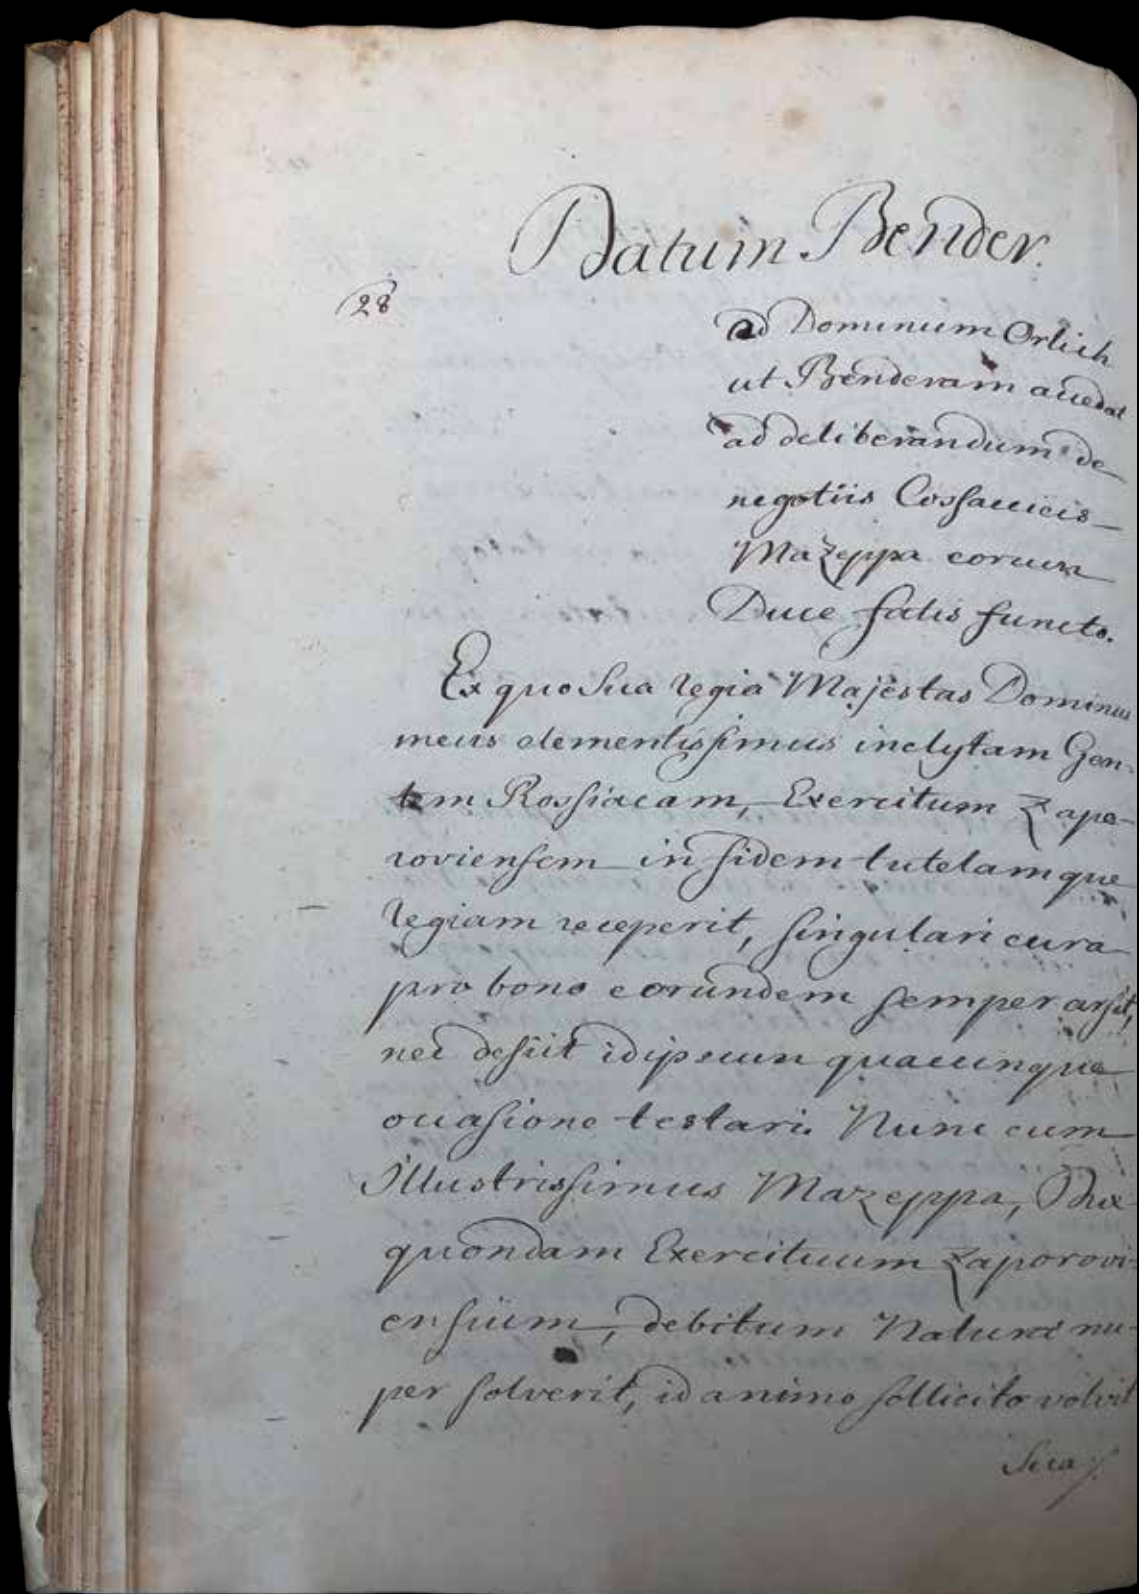 Datum Bender.
28
ad Dominum Orlich
ut Benderam accedat
ad deliberandum de
negotiis Cossaccicis
Mazeppa eorum
Duce fatis functo.
Ex quo Sua regia Majestas Dominus
meus clementissimus inclytam Gen-
tem Rossiacam, Exercitum Zapo-
roviensem in fidem tutelamque
regiam receperit, singulari cura
pro bono eorundem semper arsit,
nec desiit idipsum quacunque
occasione testari. Nunc cum
illustrissimus Mazeppa, Dux
quondam Exercituum Zaporovi-
ensium, debitum Naturæ nu-
per solverit, id animo sollicito volvit
Sua